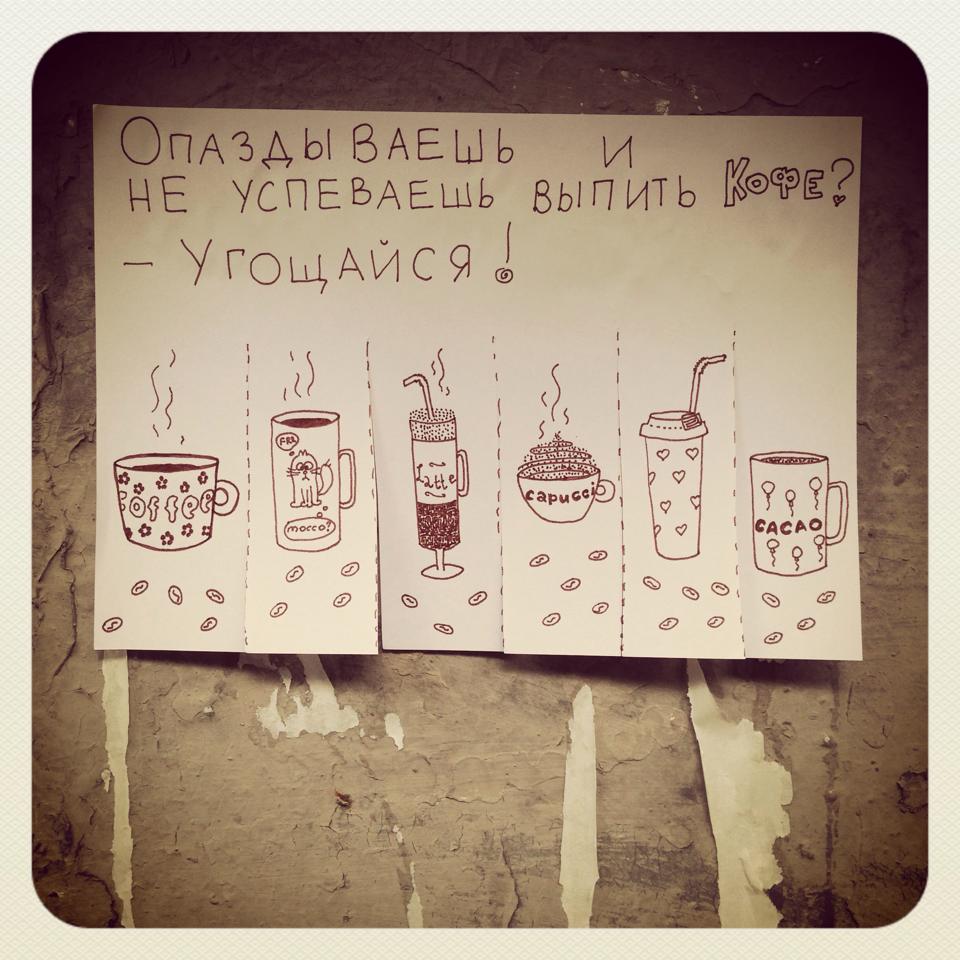 Опаздываешь и
не успеваешь выпить кофе?
– Угощайся!
Coffee
FRR
mocco?
Latte
capucci
CACAO